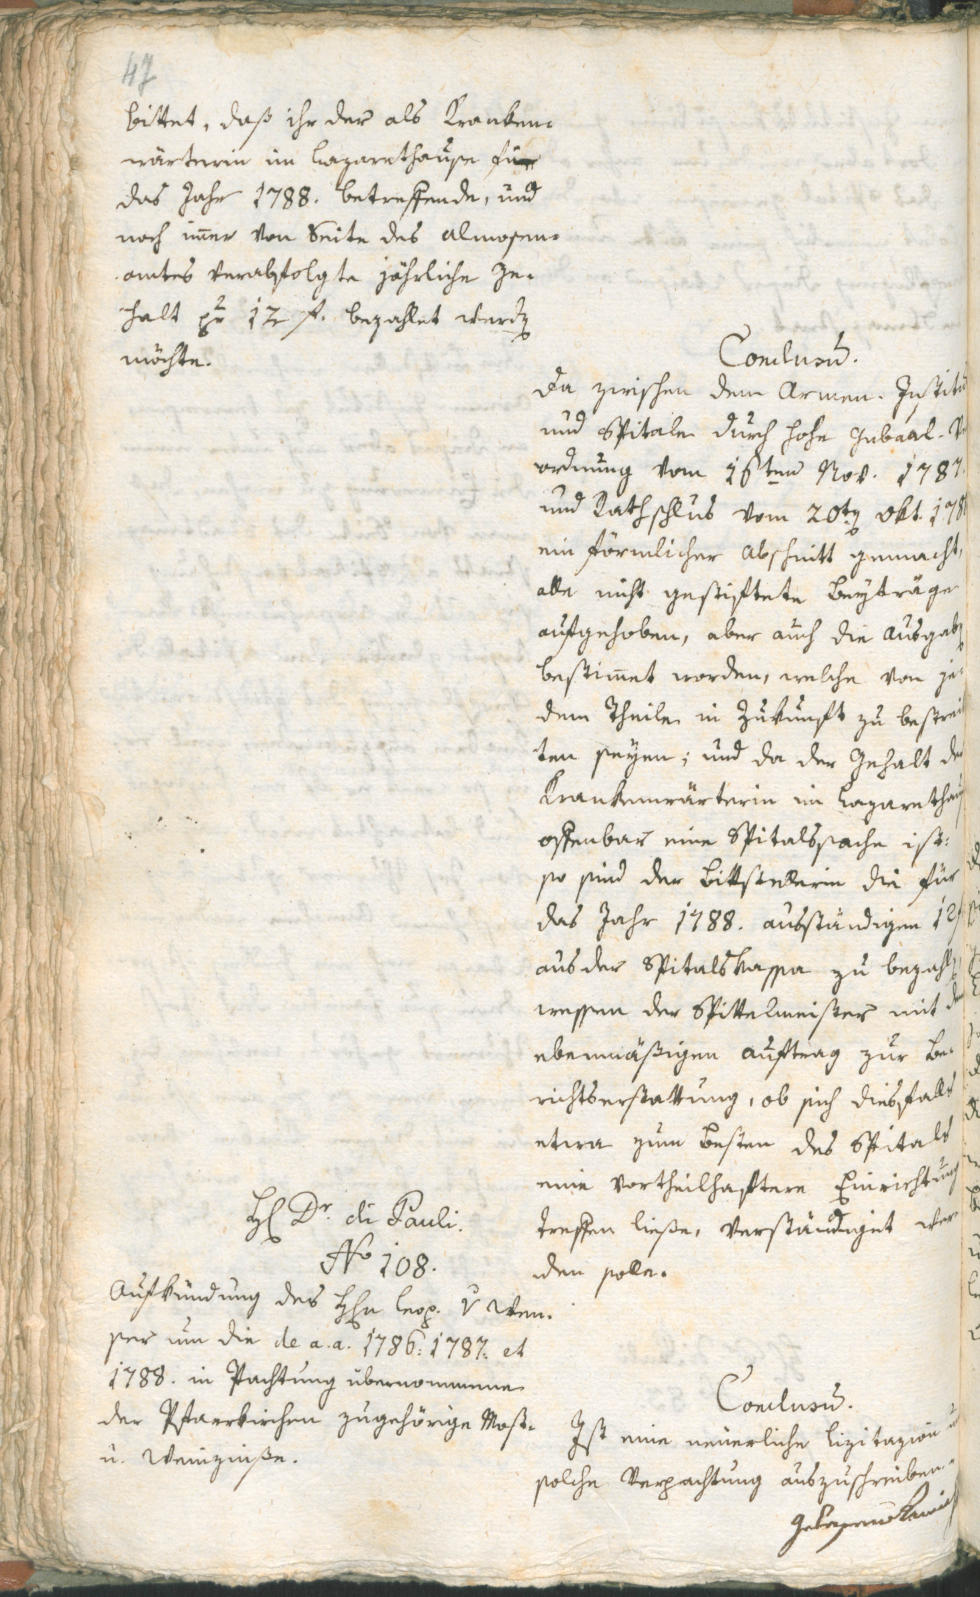 47
bittet, daß ihr der als Kranken-
wärterin im Lazarethause für
das Jahr 1788. betreffende, und
noch im̄er von Seite des Almosen-
amtes verabfolgte jährliche Ge-
halt pr 12 f. bezahlet werden
möchte.
Conclusū.
Da zwischen dem Armen-Institu
und Spitale durch hohe Gubaal-Ve
ordnung vom 16ten Nov. 1787.
und Rathschlus vom 20ten Okt. 178
ein förmlicher Abschnitt gemacht,
alle nicht gestiftete Beyträge
aufgehoben, aber auch die Ausgaben
bestim̄et worden, welche von je-
dem Theile in Zukunft zu bestrei
ten seyen; und da der Gehalt der
Krankenwärterin im Lazarethaus
offenbar eine Spitalssache ist:
so sind der Bittstellerin die für
das Jahr 1788. ausständigen 12 f
aus der Spitalskassa zu bezahlen
wessen der Spittelmeister mit dem
ebenmäßigen Auftrag zur Be-
richtserstattung, ob sich diesfalls
etwa zum Besten des Spitals
eine vortheilhaftere Einrichtung
treffen ließe, verständiget wer
den solle.
H Dr. di Pauli.
No 108.
Aufkündung des Hhn Leop. v Wen-
ser um die de a.a. 1786: 1787: et
1788. in Pachtung übernommene
der Pfarrkirchen zugehörige Most-
u. Weinzinse.
Conclusū.
Ist eine neuerliche Lizitazion u
solche Verpachtung auszuschreiben.